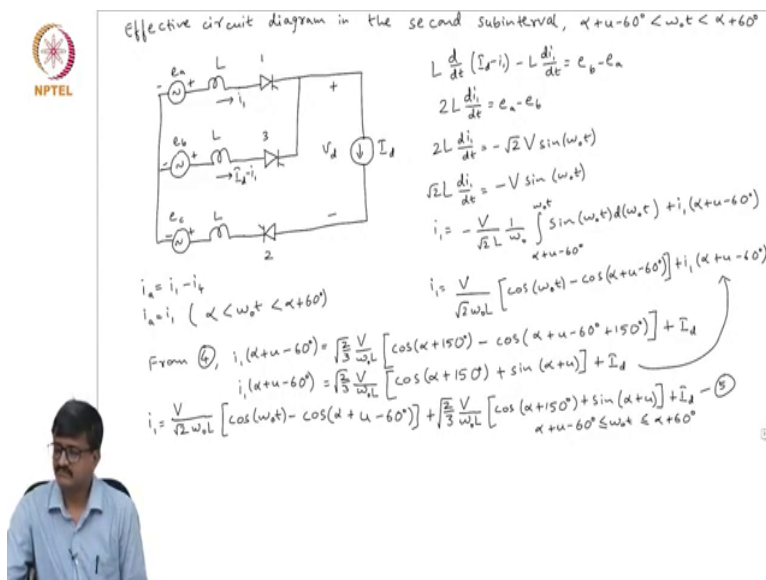 Effective circuit diagram in the second subinterval, α+u-60° < ω₀t < α+60°
NPTEL
- eₐ + L 1
→ i₁
- e_b + L 3
→ I_d-i₁
- e_c + L
2
+
V_d I_d
-
L d/dt (I_d-i₁) - L di₁/dt = e_b-eₐ
2L di₁/dt = eₐ-e_b
2L di₁/dt = -√2 V sin(ω₀t)
√2 L di₁/dt = -V sin(ω₀t)
i₁ = -V/(√2 L) 1/ω₀ ∫_{α+u-60°}^{ω₀t} sin(ω₀t) d(ω₀t) + i₁(α+u-60°)
i₁ = V/(√2 ω₀L) [cos(ω₀t) - cos(α+u-60°)] + i₁(α+u-60°)
iₐ = i₁-i₄
iₐ = i₁ (α < ω₀t < α+60°)
From ④, i₁(α+u-60°) = √(2/3) V/(ω₀L) [cos(α+150°) - cos(α+u-60°+150°)] + I_d
i₁(α+u-60°) = √(2/3) V/(ω₀L) [cos(α+150°) + sin(α+u)] + I_d
i₁ = V/(√2 ω₀L) [cos(ω₀t) - cos(α+u-60°)] + √(2/3) V/(ω₀L) [cos(α+150°) + sin(α+u)] + I_d - ⑤
α+u-60° ≤ ω₀t ≤ α+60°